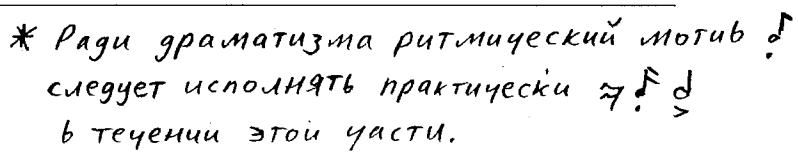 * Ради драматизма ритмический мотив
следует исполнять практически
в течении этой части.